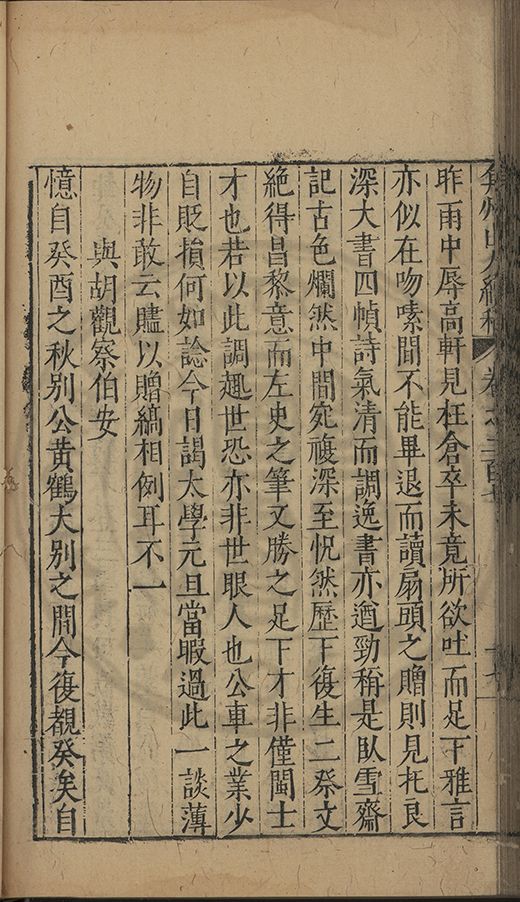 弇州山人續稿 卷之二百七 十七
昨雨中辱高軒見枉倉卒未竟所欲吐而足下雅言
亦似在吻嗉間不能畢退而讀扇頭之贈則見托良
深大書四幀詩氣清而調逸書亦遒勁稱是臥雪齋
記古色爛然中間宛複深至怳然歷下復生二祭文
絶得昌黎意而左史之筆又勝之足下才非僅閩士
才也若以此調趣世恐亦非世眼人也公車之業少
自貶損何如諗今日謁太學元旦當暇過此一談薄
物非敢云贐以贈縞相例耳不一
與胡觀察伯安
憶自癸酉之秋別公黃鶴大別之間今復覩癸矣自